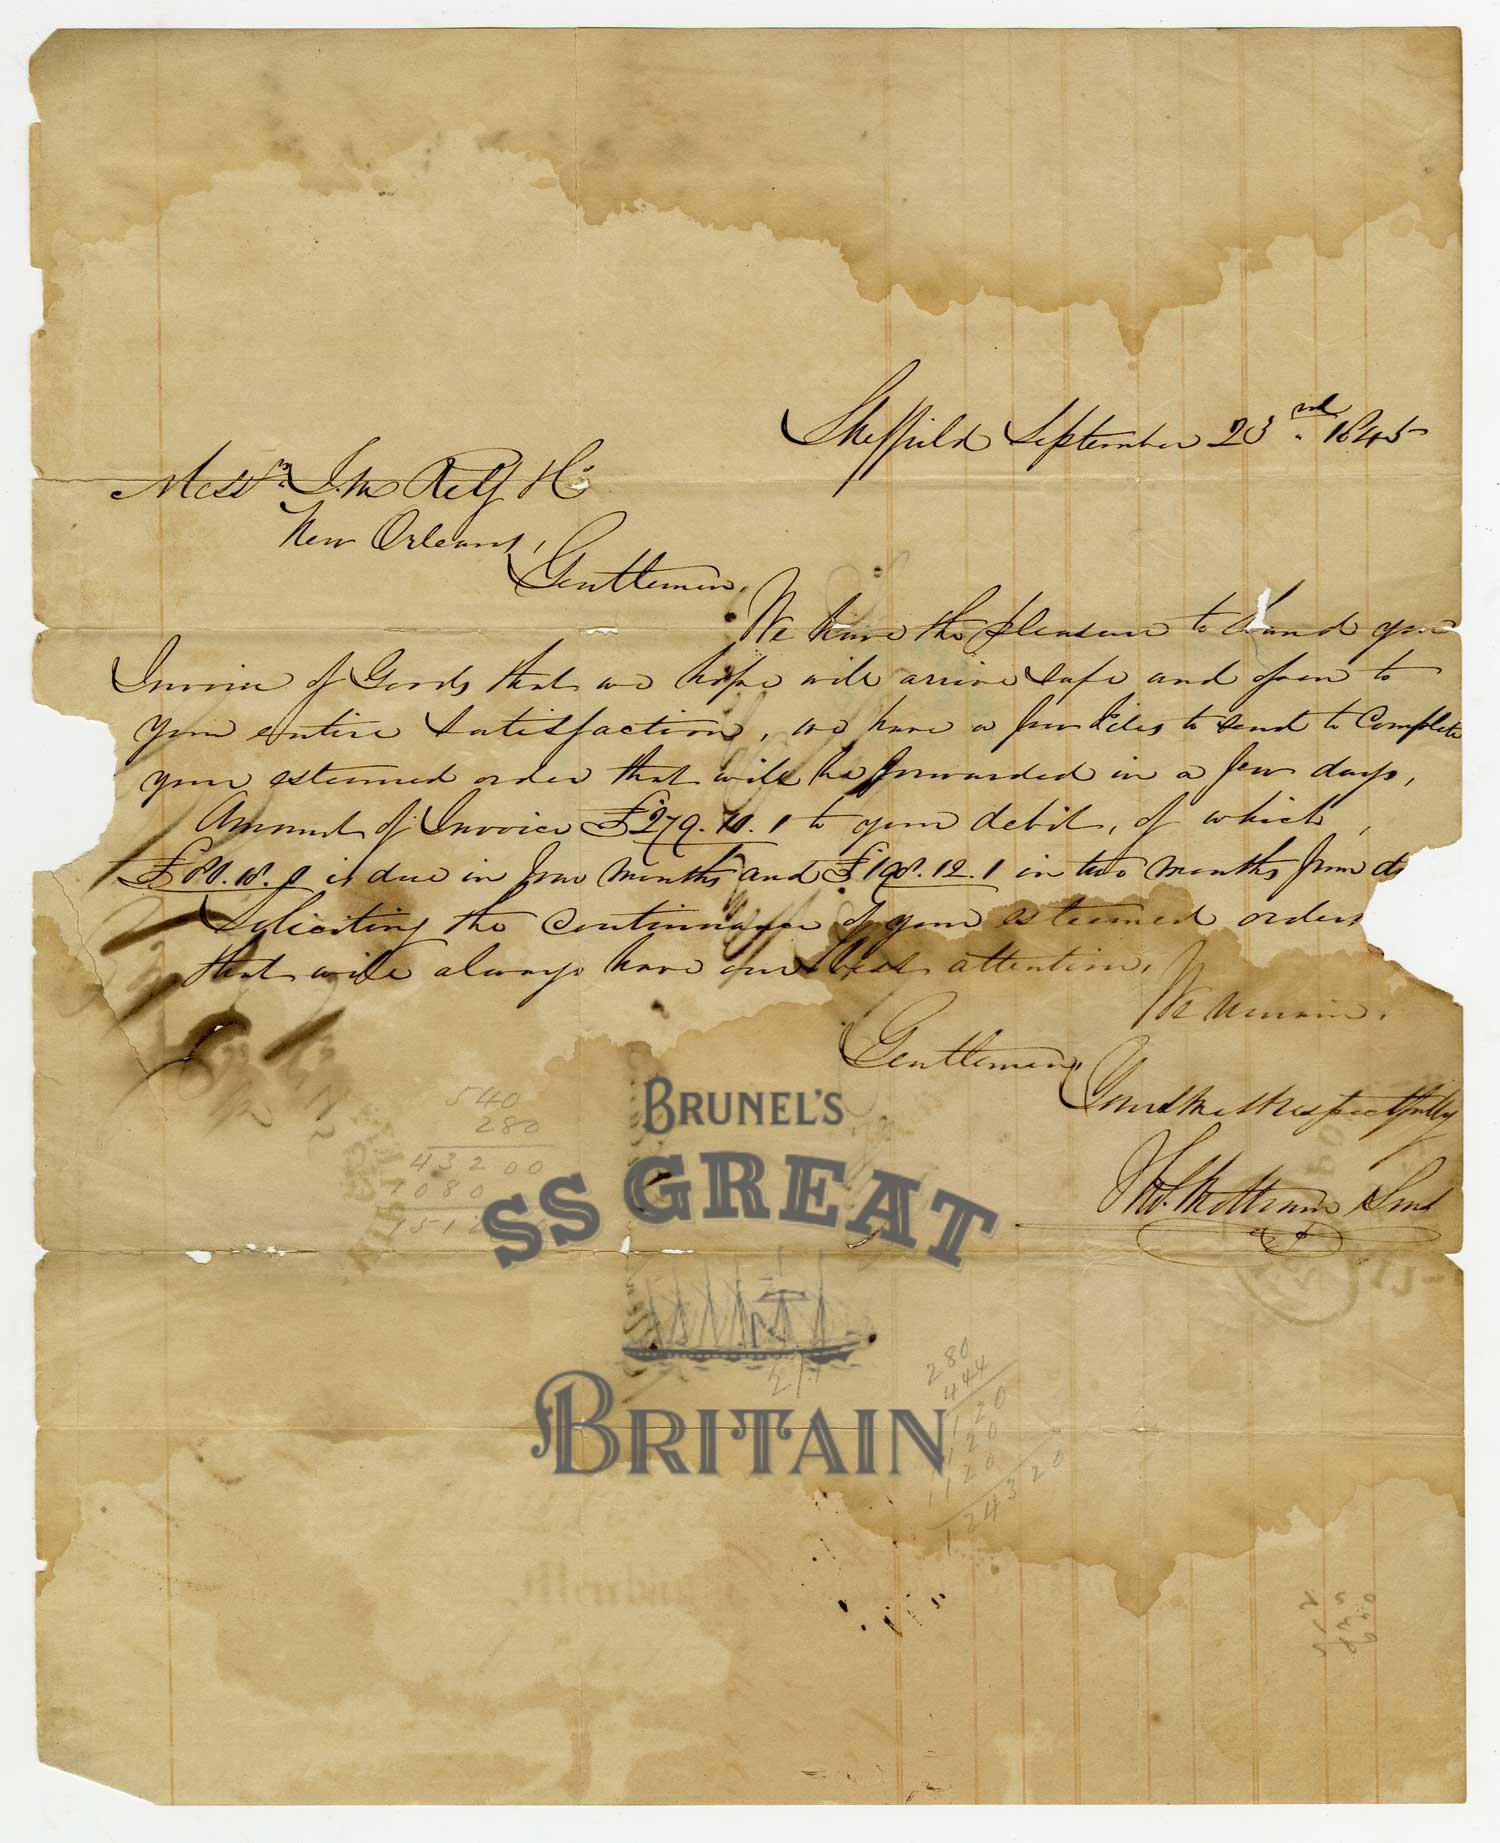 Sheffield September 23rd. 1845
Messrs. Relf &Co
New Orleans,
Gentlemen,
We have the pleasure to hand you
Invoice of Goods that we hope will arrive safe and open to
your entire satisfaction, we have a few to send to Complete
your esteemed order that will be forwarded in a few days,
Amount of Invoice £279.10.1 to your debit, of which,
is due in four months and £198.12.1 in two months from
Soliciting the continuance of your esteemed orders
that will always have our best attention,
We remain,
Gentlemen,
Yours Most Respectfully
Thos. Mottram Sons
540
280
43200
1080
1512
BRUNEL'S
SS GREAT
BRITAIN
280
444
1120
1120
1120
124320